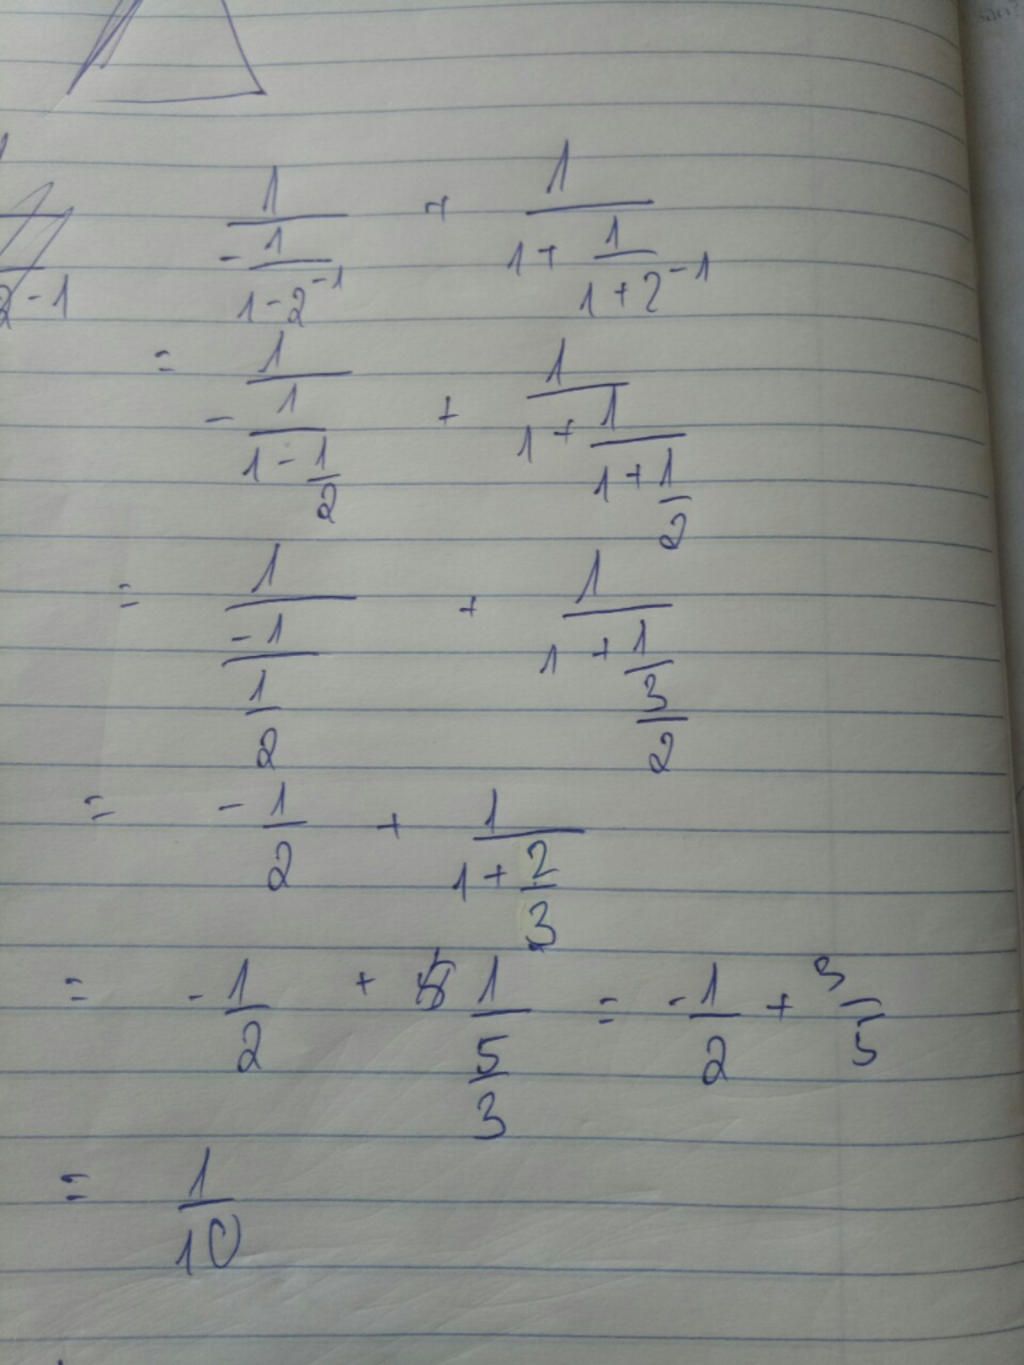 1/(-1/(1-2^-1)) + 1/(1+1/(1+2^-1))
2-1
= 1/(-1/(1-1/2)) + 1/(1+1/(1+1/2))
= 1/(-1/(1/2)) + 1/(1+1/(3/2))
= -1/2 + 1/(1+2/3)
= -1/2 + 1/(5/3) = -1/2 + 3/5
= 1/10